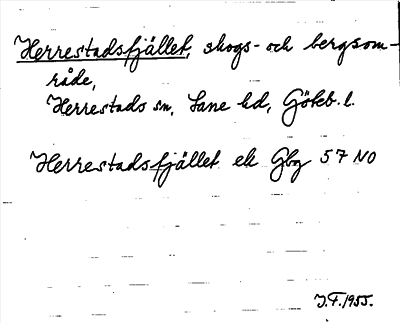 Herrestadsfjället, skogs- och bergsom-
råde,
Herrestads sn, Lane hd, Göteb. l.
Herrestadsfjället ek Gbg 57 NO
J.F. 1955.